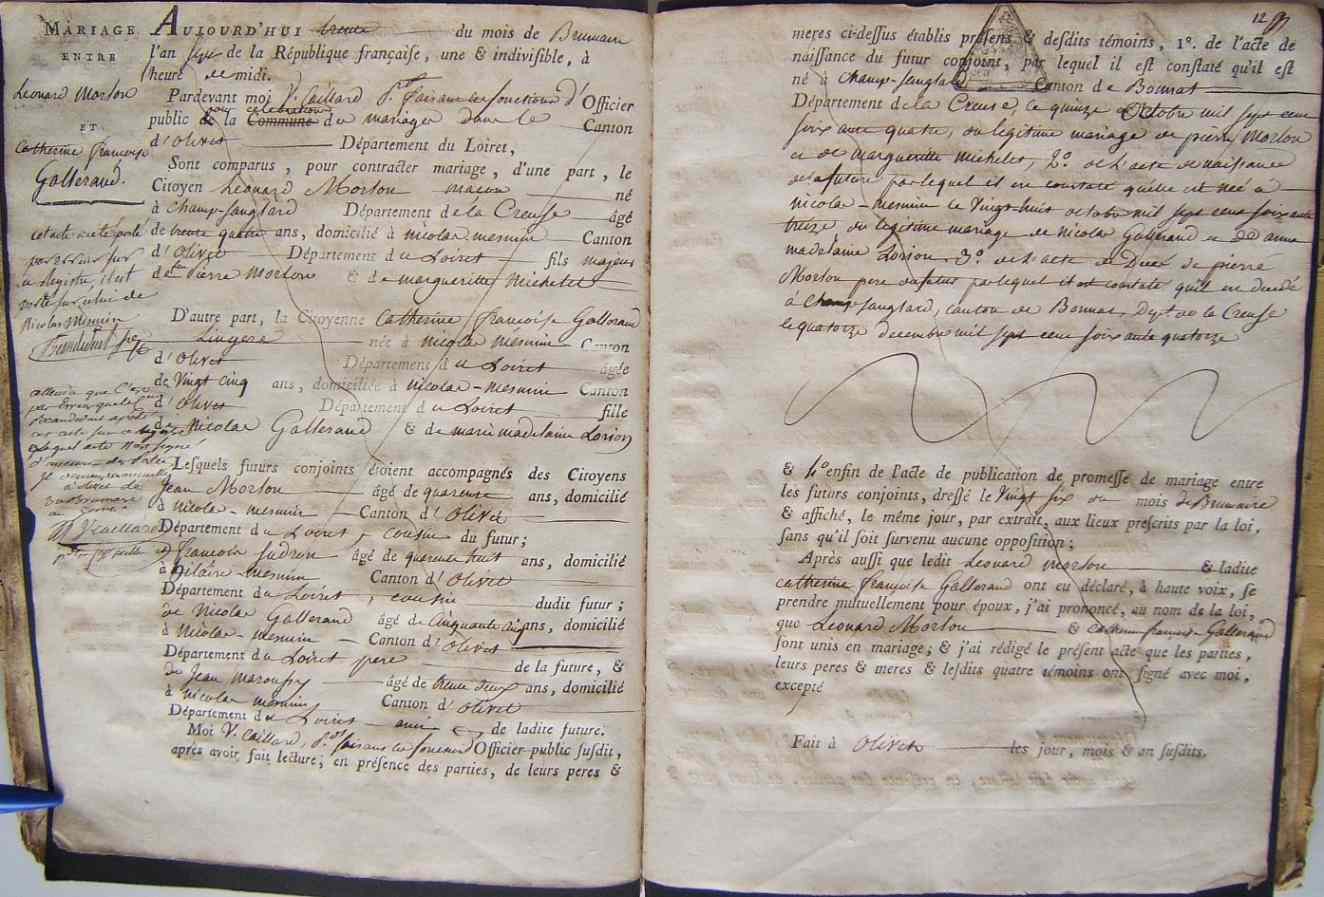 MARIAGE
ENTRE
Leonard Morlon
ET
Catherine françoise
Gallerand.
cet acte a été porté
par erreur sur
ce Registre, il est
porté sur celui de
Nicolas Mesmin
AUJOURD'HUI trente du mois de Brumaire
l'an sept de la République françaiſe, une & indiviſible, à
heure de midi.
Pardevant moi V. Caillard Pt. faisant les fonctions d'Officier
public pour la celebration Commune des mariages dans le Canton
d'Olivet Département du Loiret,
Sont comparus, pour contracter mariage, d'une part, le
Citoyen Léonard Morlon macon né
à Champ-sanglard Département de la Creuse âgé
de trente quatre ans, domicilié à nicolas mesmin Canton
d'Olivet Département du Loiret fils majeur
de Pierre Morlon & de margueritte Michelet
D'autre part, la Citoyenne Catherine françoise Gallerand
Lingere née à nicolas mesmin Canton
d'Olivet Département du Loiret âgée
de Vingt cinq ans, domiciliée à nicolas-mesmin Canton
d'Olivet Département du Loiret fille
de Nicolas Gallerand & de marie madelaine Lorion
Leſquels futurs conjoints étoient accompagnés des Citoyens
Jean Morlon âgé de quarente ans, domicilié
à nicolas-mesmin Canton d'Olivet
Département du Loiret, cousin du futur;
françois Sudron âgé de quarente huit ans, domicilié
à hilaire-mesmin Canton d'Olivet
Département du Loiret, cousin dudit futur;
de Nicolas Gallerand âgé de Cinquante cinq ans, domicilié
à Nicolas-mesmin Canton d'Olivet
Département du Loiret pere de la future, &
de Jean âgé de trente deux ans, domicilié
à nicolas mesmin Canton d'Olivet
Département du Loiret ami de ladite future.
Moi V. Caillard, Pt. faisant les fonctions Officier public ſuſdit,
après avoir fait lecture; en préſence des parties, de leurs peres &
12
meres ci-deſſus établis préſens & deſdits témoins, 1°. de l'acte de
naiſſance du futur conjoint, par lequel il eſt conſtaté qu'il eſt
né à Champ-Sanglard Canton de Bonnat
Département de la Creuse, le quinze Octobre mil sept cent
soixante quatre, du légitime mariage de pierre Morlon
et de margueritte Michelet, 2°. de l'acte de naissance
de la future par lequel il est constaté qu'elle est née à
nicolas-mesmin le Vingt-huit octobre mil sept cent soixante
treize, du légitime mariage de Nicolas Gallerand et de anne
madelaine Lorion, 3°. de l'acte de Décès de pierre
Morlon pere du futur par lequel il est constaté qu'il est décédé
à Champ-sanglard, canton de Bonnat, Dept. de la Creuse
le quatorze decembre mil sept cent soixante quatorze
& 4° enfin de l'acte de publication de promeſſe de mariage entre
les futurs conjoints, dreſſé le Vingt six du mois de Brumaire
& affiché, le même jour, par extrait, aux lieux preſcrits par la loi,
ſans qu'il ſoit ſurvenu aucune oppoſition;
Après auſſi que ledit Leonard Morlon & ladite
catherine françoise Gallerand ont eu déclaré, à haute voix, ſe
prendre mutuellement pour époux, j'ai prononcé, au nom de la loi,
que Leonard Morlon & catherine françoise Gallerand
ſont unis en mariage; & j'ai rédigé le préſent acte que les parties,
leurs peres & meres & leſdits quatre témoins ont ſigné avec moi,
excepté
Fait à Olivet les jour, mois & an ſuſdits.